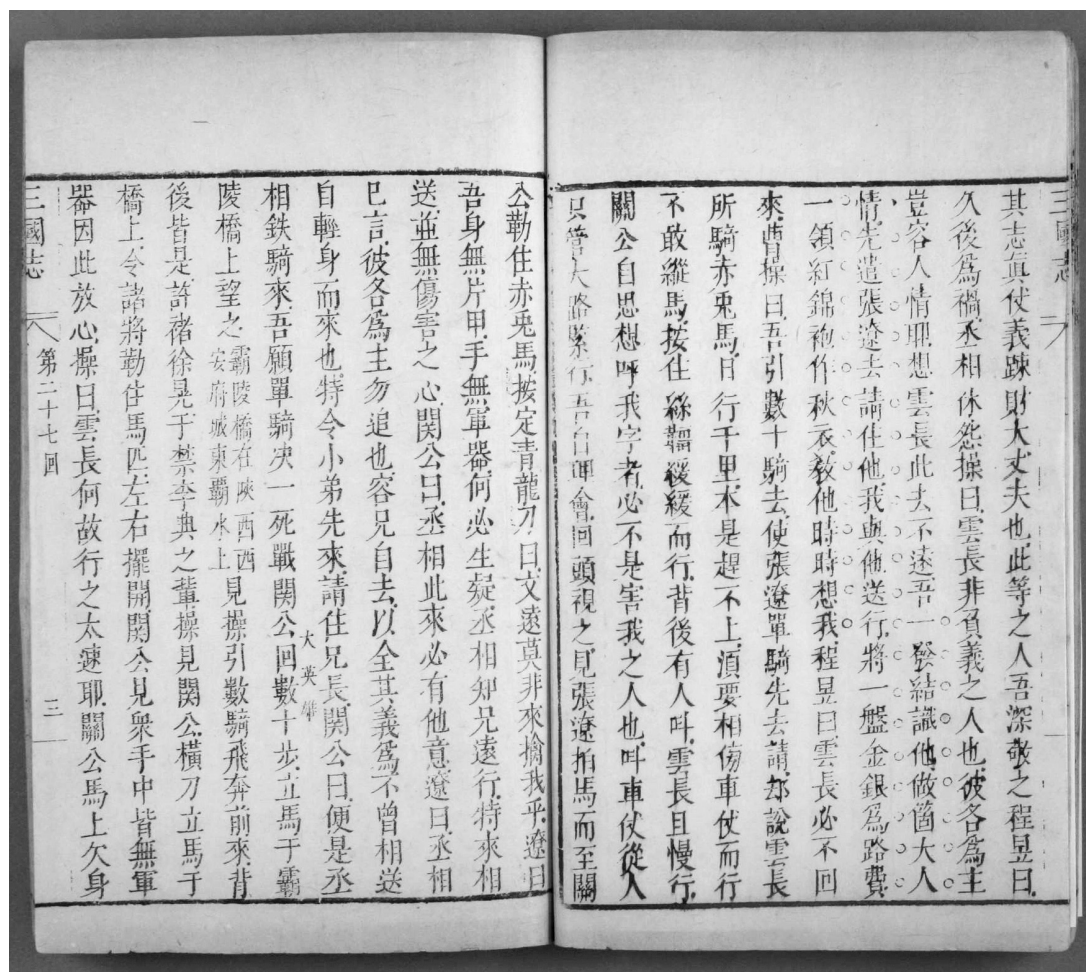 三國志
其志真仗義踈財大丈夫也此等之人吾深敬之程昱曰
久後爲禍丞相休怨操曰雲長非負義之人也彼各爲主
豈容人情耶想雲長此去不遠吾一發結識他做箇大人
情先遣張遼去請住他我與他送行將一盤金銀爲路費
一領紅錦袍作秋衣教他時時想我程昱曰雲長必不回
來曹操曰吾引數十騎去使張遼單騎先去請却說雲長
所騎赤兎馬日行千里本是趕不上須要相傍車仗而行
不敢縱馬按住絲韁緩緩而行背後有人叫雲長且慢行
關公自思想呼我字者必不是害我之人也叫車仗從人
只管大路緊行吾自理會回頭視之見張遼拍馬而至關
公勒住赤兎馬按定青龍刀曰文遠莫非來擒我乎遼曰
吾身無片甲手無軍器何必生疑丞相知兄遠行特來相
送並無傷害之心関公曰丞相此來必有他意遼曰丞相
已言彼各爲主勿追也容兄自去以全其義爲不曾相送
自輕身而來也特令小弟先來請住兄長関公曰便是丞
大英雄
相鉄騎來吾願單騎决一死戰関公回數十步立馬于霸
陵橋上望之霸陵橋在陝西西安府城東霸水上見操引數騎飛奔前來背
後皆是許褚徐晃于禁李典之輩操見関公橫刀立馬于
橋上令諸將勒住馬匹左右擺開関公見衆手中皆無軍
器因此放心操曰雲長何故行之太速耶關公馬上欠身
三國志 第二十七回 三